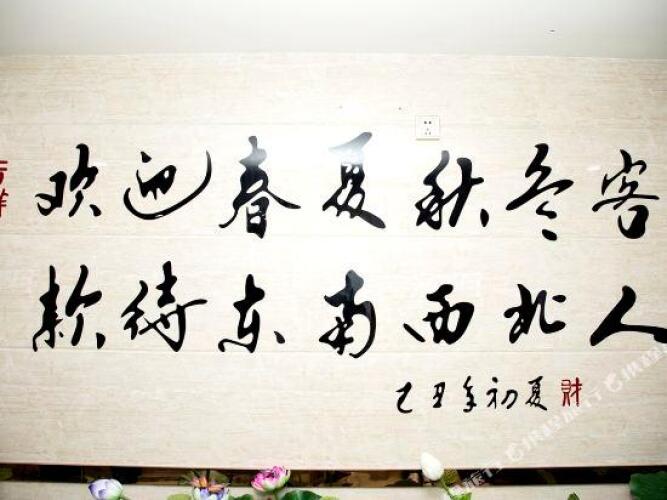 欢迎春夏秋冬客
款待东南西北人
乙丑年初夏 财